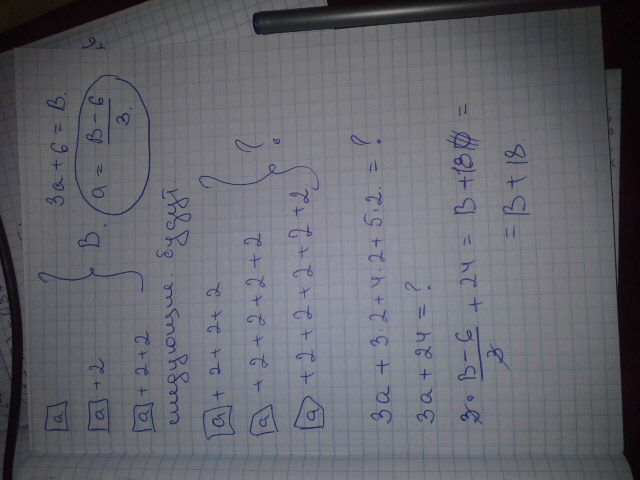 a
a + 2
a + 2 + 2
} B.
3a + 6 = B.
a = B - 6 / 3.
следующие. будут.
a + 2 + 2 + 2
a + 2 + 2 + 2 + 2
a + 2 + 2 + 2 + 2 + 2.
} ?
3a + 3·2 + 4·2 + 5·2. = ?
3a + 24 = ?
3 · B - 6 / 3 + 24 = B + 18 =
= B + 18.